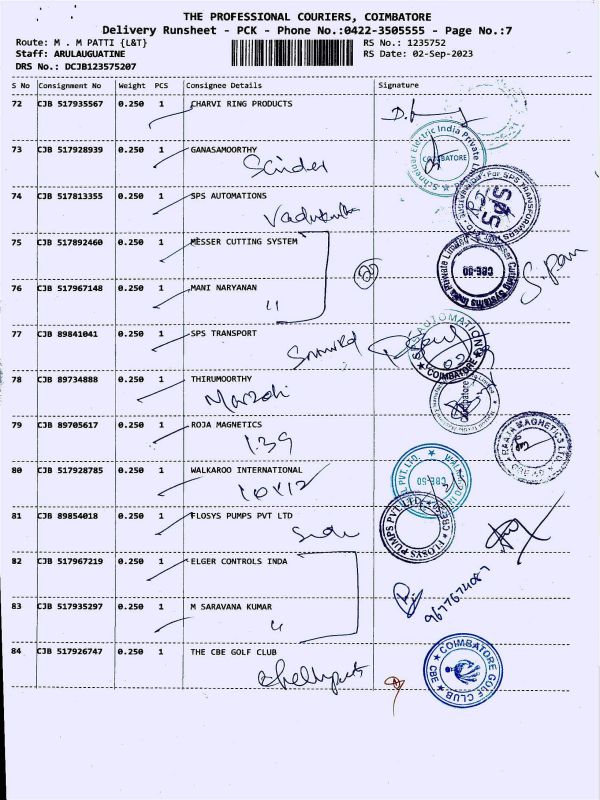 THE PROFESSIONAL COURIERS, COIMBATORE
Delivery Runsheet - PCK - Phone No.:0422-3505555 - Page No.:7
Route: M . M PATTI {L&T} RS No.: 1235752
Staff: ARULAUGUATINE RS Date: 02-Sep-2023
DRS No.: DCJB123575207
S No Consignment No Weight PCS Consignee Details Signature
72 CJB 517935567 0.250 1 CHARVI RING PRODUCTS
73 CJB 517928939 0.250 1 GANASAMOORTHY
74 CJB 517813355 0.250 1 SPS AUTOMATIONS
75 CJB 517892460 0.250 1 MESSER CUTTING SYSTEM
76 CJB 517967148 0.250 1 MANI NARYANAN
77 CJB 89841041 0.250 1 SPS TRANSPORT
78 CJB 89734888 0.250 1 THIRUMOORTHY
79 CJB 89705617 0.250 1 ROJA MAGNETICS
139
80 CJB 517928785 0.250 1 WALKAROO INTERNATIONAL
10X12
81 CJB 89854018 0.250 1 FLOSYS PUMPS PVT LTD
82 CJB 517967219 0.250 1 ELGER CONTROLS INDA
9677674087
83 CJB 517935297 0.250 1 M SARAVANA KUMAR
84 CJB 517926747 0.250 1 THE CBE GOLF CLUB
COIMBATORE GOLF CLUB CBE